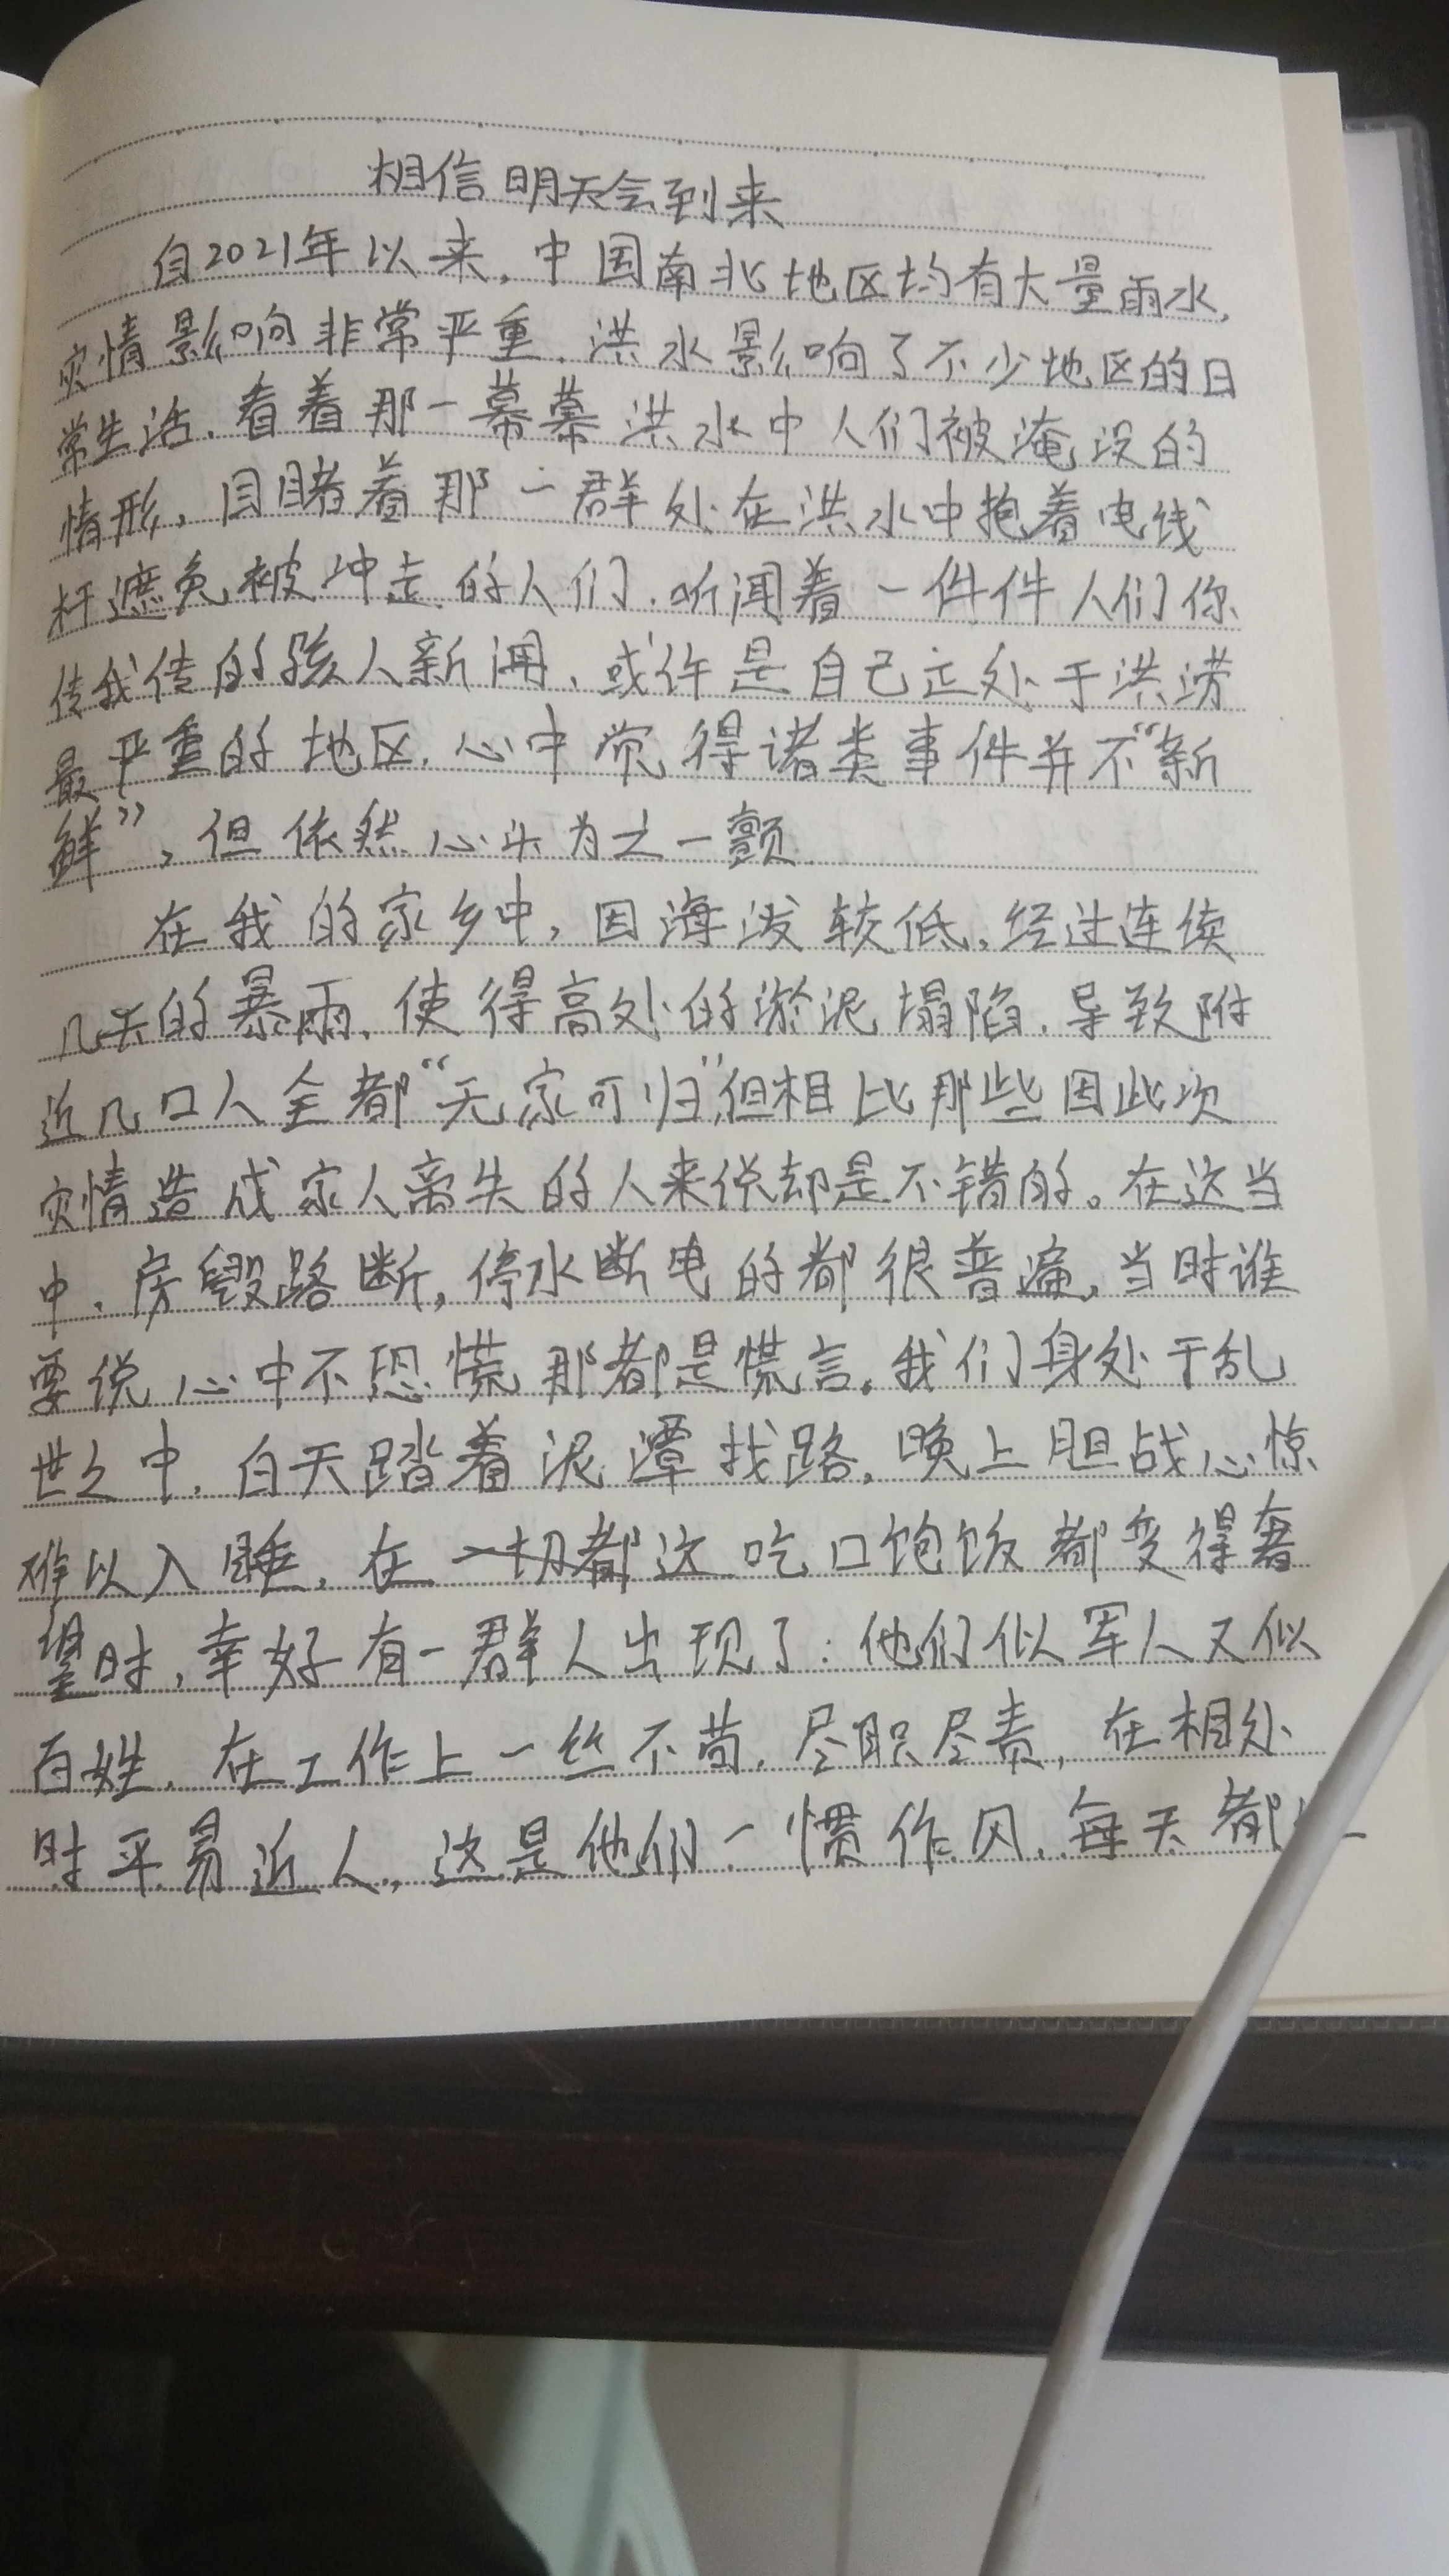 相信明天会到来
自2021年以来,中国南北地区均有大量雨水,
灾情影响非常严重,洪水影响了不少地区的日
常生活,看着那一幕幕洪水中人们被淹没的
情形,目睹着那一群处在洪水中抱着电线
杆遮免被冲走的人们,听闻着一件件人们你
传我传的骇人新闻,或许是自己正处于洪涝
最严重的地区,心中觉得诸类事件并不“新
鲜”,但依然心头为之一颤
在我的家乡中,因海泼较低,经过连续
几天的暴雨,使得高处的淤泥塌陷,导致附
近几口人全都“无家可归”,但相比那些因此次
灾情造成家人离失的人来说却是不错的。在这当
中,房毁路断,停水断电的都很普遍,当时谁
要说心中不恐慌那都是慌言,我们身处于乱
世之中,白天踏着泥潭找路,晚上胆战心惊
难以入睡,在一切都这吃口饱饭都变得奢
望时,幸好有一群人出现了:他们似军人又似
百姓,在工作上一丝不苟,尽职尽责,在相处
时平易近人,这是他们一惯作风,每天都